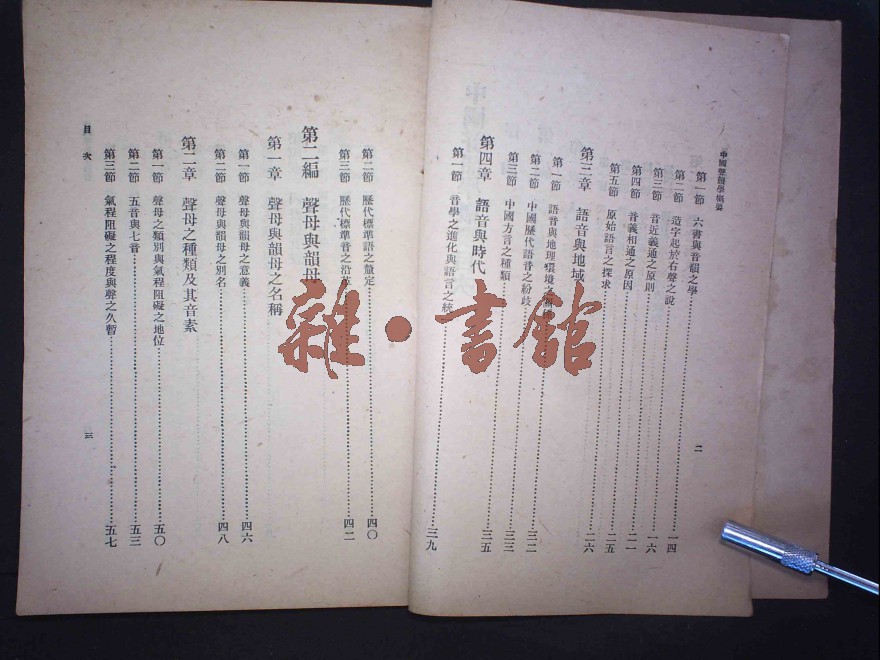 中國聲韻學概要 二
第一節 六書與音韻之學 一四
第二節 造字起於右聲之說 一六
第三節 音近義通之原則 二一
第四節 音義相通之原因 二五
第五節 原始語言之探求 二六
第三章 語音與地域
第一節 語音與地理環境之 三二
第二節 中國歷代語音之紛歧 三三
第三節 中國方言之種類 三五
第四章 語音與時代
第一節 音學之進化與語言之統 三九
第二節 歷代標準語之釐定 四〇
第三節 歷代標準音之沿 四二
第二編 聲母與韻母
第一章 聲母與韻母之名稱
第一節 聲母與韻母之意義 四六
第二節 聲母與韻母之別名 四八
第二章 聲母之種類及其音素
第一節 聲母之類別與氣程阻礙之地位 五〇
第二節 五音與七音 五三
第三節 氣程阻礙之程度與聲之久暫 五七
目次 三
雜·書館